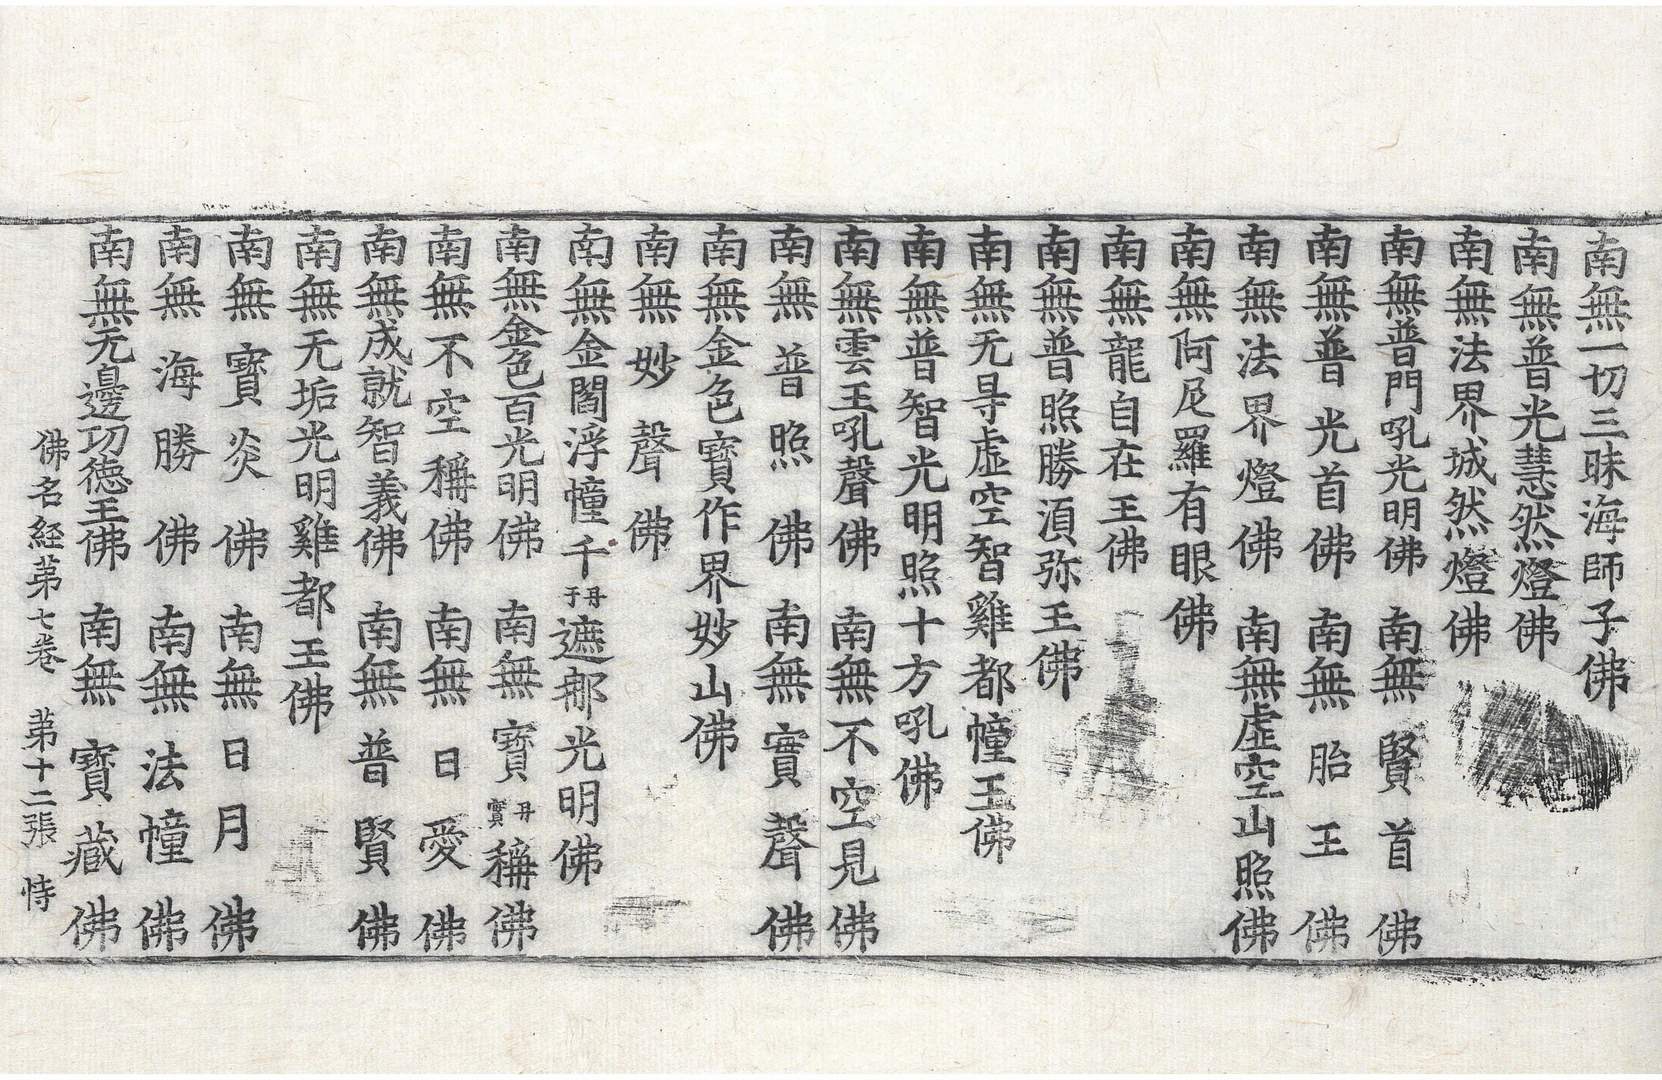 南無一切三昧海師子佛
南無普光慧然燈佛
南無法界城然燈佛
南無普門吼光明佛　南無賢首佛
南無普光首佛　南無胎王佛
南無法界燈佛　南無虛空山照佛
南無阿尼羅有眼佛
南無龍自在王佛
南無普照勝湏弥王佛
南無无㝵虛空智雞都幢王佛
南無普智光明照十方吼佛
南無雲王吼聲佛　南無不空見佛
南無普照佛　南無寶聲佛
南無金色寶作界妙山佛
南無妙聲佛
南無金閻浮幢千丹于遮那光明佛
南無金色百光明佛　南無寶丹實稱佛
南無不空稱佛　南無日愛佛
南無成就智義佛　南無普賢佛
南無无垢光明雞都王佛
南無寶炎佛　南無日月佛
南無海勝佛　南無法幢佛
南無无邊功德王佛　南無寶藏佛
佛名経苐七卷　苐十二張　恃